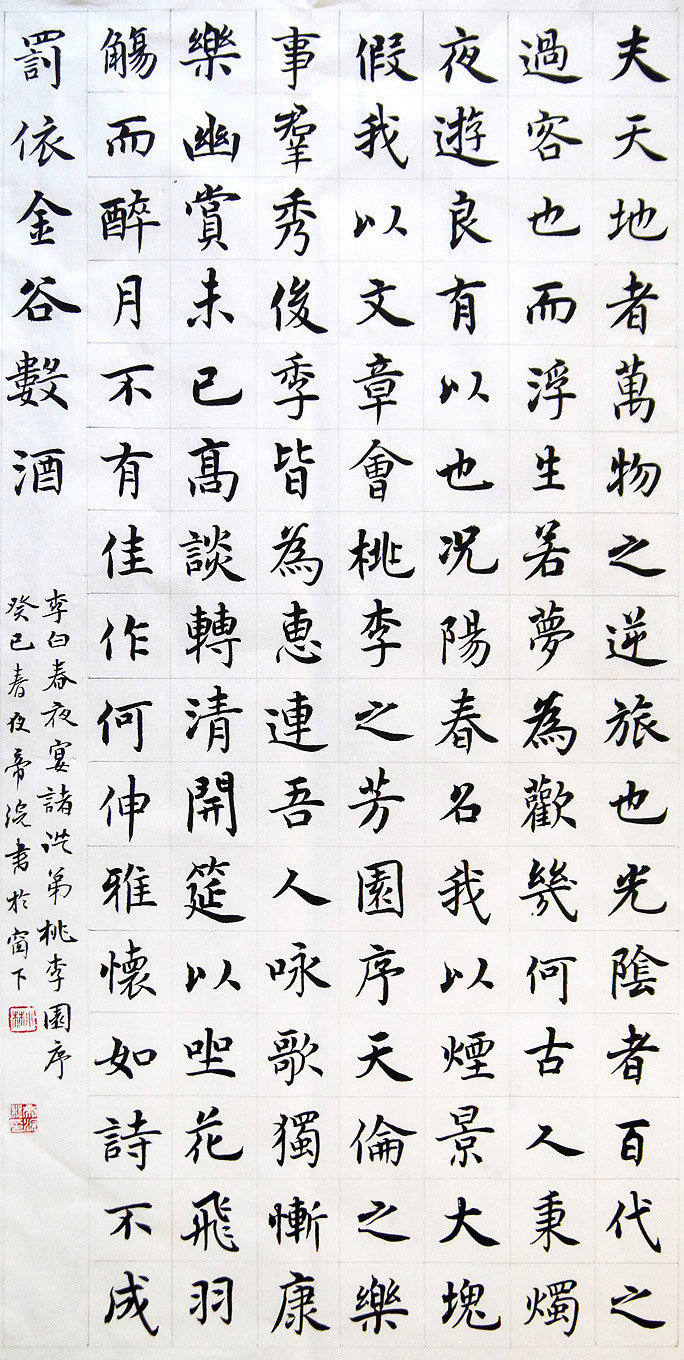 夫天地者萬物之逆旅也光陰者百代之
過客也而浮生若夢為歡幾何古人秉燭
夜遊良有以也况陽春名我以煙景大塊
假我以文章會桃李之芳園序天倫之樂
事羣秀俊季皆為惠連吾人咏歌獨慚康
樂幽賞未已髙談轉清開筵以坐花飛羽
觴而醉月不有佳作何伸雅懷如詩不成
罰依金谷數酒
李白春夜宴諸從弟桃李園序
癸巳春夜書於窗下